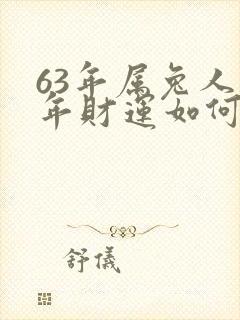 63年属兔人
年财运如何
舒儀